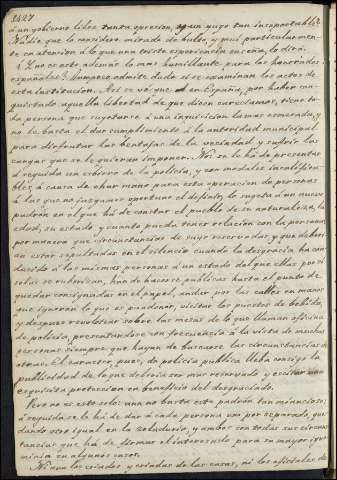 3427
á un gobierno libre tanta opresion, y un yugo tan insoportable?
Nadie que lo considere mirado de bulto, y pues particularmen-
te con atencion á lo que una triste esperiencia enseña, lo dirá.
¿Y no es esto además lo mas humillante para los honrados
españoles? Tampoco admite duda si se examinan los actos de
esta institucion. Asi se vé que en España, por haber con-
quistado aquella libertad de que dicen careciamos, tiene to-
da persona que sujetarse á una inquisicion la mas esmerada, y
no le basta el dar cumplimiento á la autoridad municipal
para disfrutar las ventajas de la sociedad y sufrir las
cargas que se le quieran imponer. No: se le há de presentar
á seguida un esbirro de la policia, y con modales
á causa de echar mano para esta operacion de personas
á las que no juzgamos oportuno el definir, lo sujeta á un nuevo
padron en el que há de constar el pueblo de su naturaleza, la
edad, su estado, y cuanto pueda tener relacion con la persona,
por manera que circunstancias de suyo reservadas y que debie-
ran estar sepultadas en el silencio cuando la desgracia ha con-
ducido á las mismas personas á un estado del que ellas por sí
solas se ruborizan, han de hacerse publicas hasta el punto de
quedar consignadas en el papel, andar por las calles en manos
que ignoran lo que es pundonor, visitar los puestos de bebida,
y despues revolverse sobre las mesas de lo que llaman oficina
de policia, presentandose con frecuencia á la vista de muchas
personas siempre que hayan de buscarse las circunstancias de
otras. El caracter, pues, de policia publica lleva consigo la
publicidad de lo que debiera ser muy reservado y
esquisita proteccion en beneficio del desgraciado.
Pero no es esto solo: aun no basta este padron tan minucioso;
á seguida se le há de dar á cada persona uno por separado, que-
dando otro igual en la celaduria, y ambos con todas sus circuns-
tancias que há de firmar el interesado para su mayor igno-
minia en algunos casos.
Ni aun los criados y criadas de las casas, ni los oficiales de